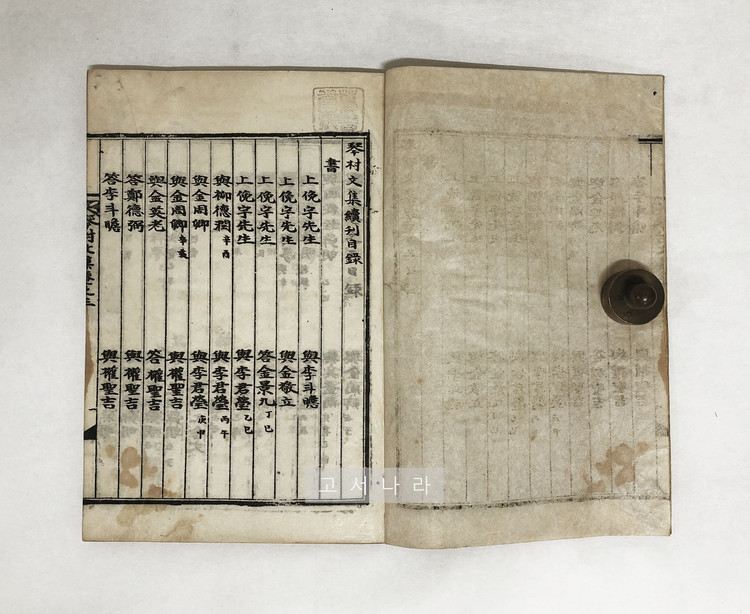 琴村文集續刊目錄
書
上俛字先生 與李斗瞻
上俛字先生 與金敬立
上俛字先生 答金景九 丁巳
上俛字先生 與李君瑩 乙巳
與柳德潤 辛酉 與李君瑩 丙午
與金周卿 與李君瑩 庚申
與金周卿 辛亥 與權聖吉
與金英老 答權聖吉
答鄭德弼 與權聖吉
答李斗瞻 與權聖吉
고서나라